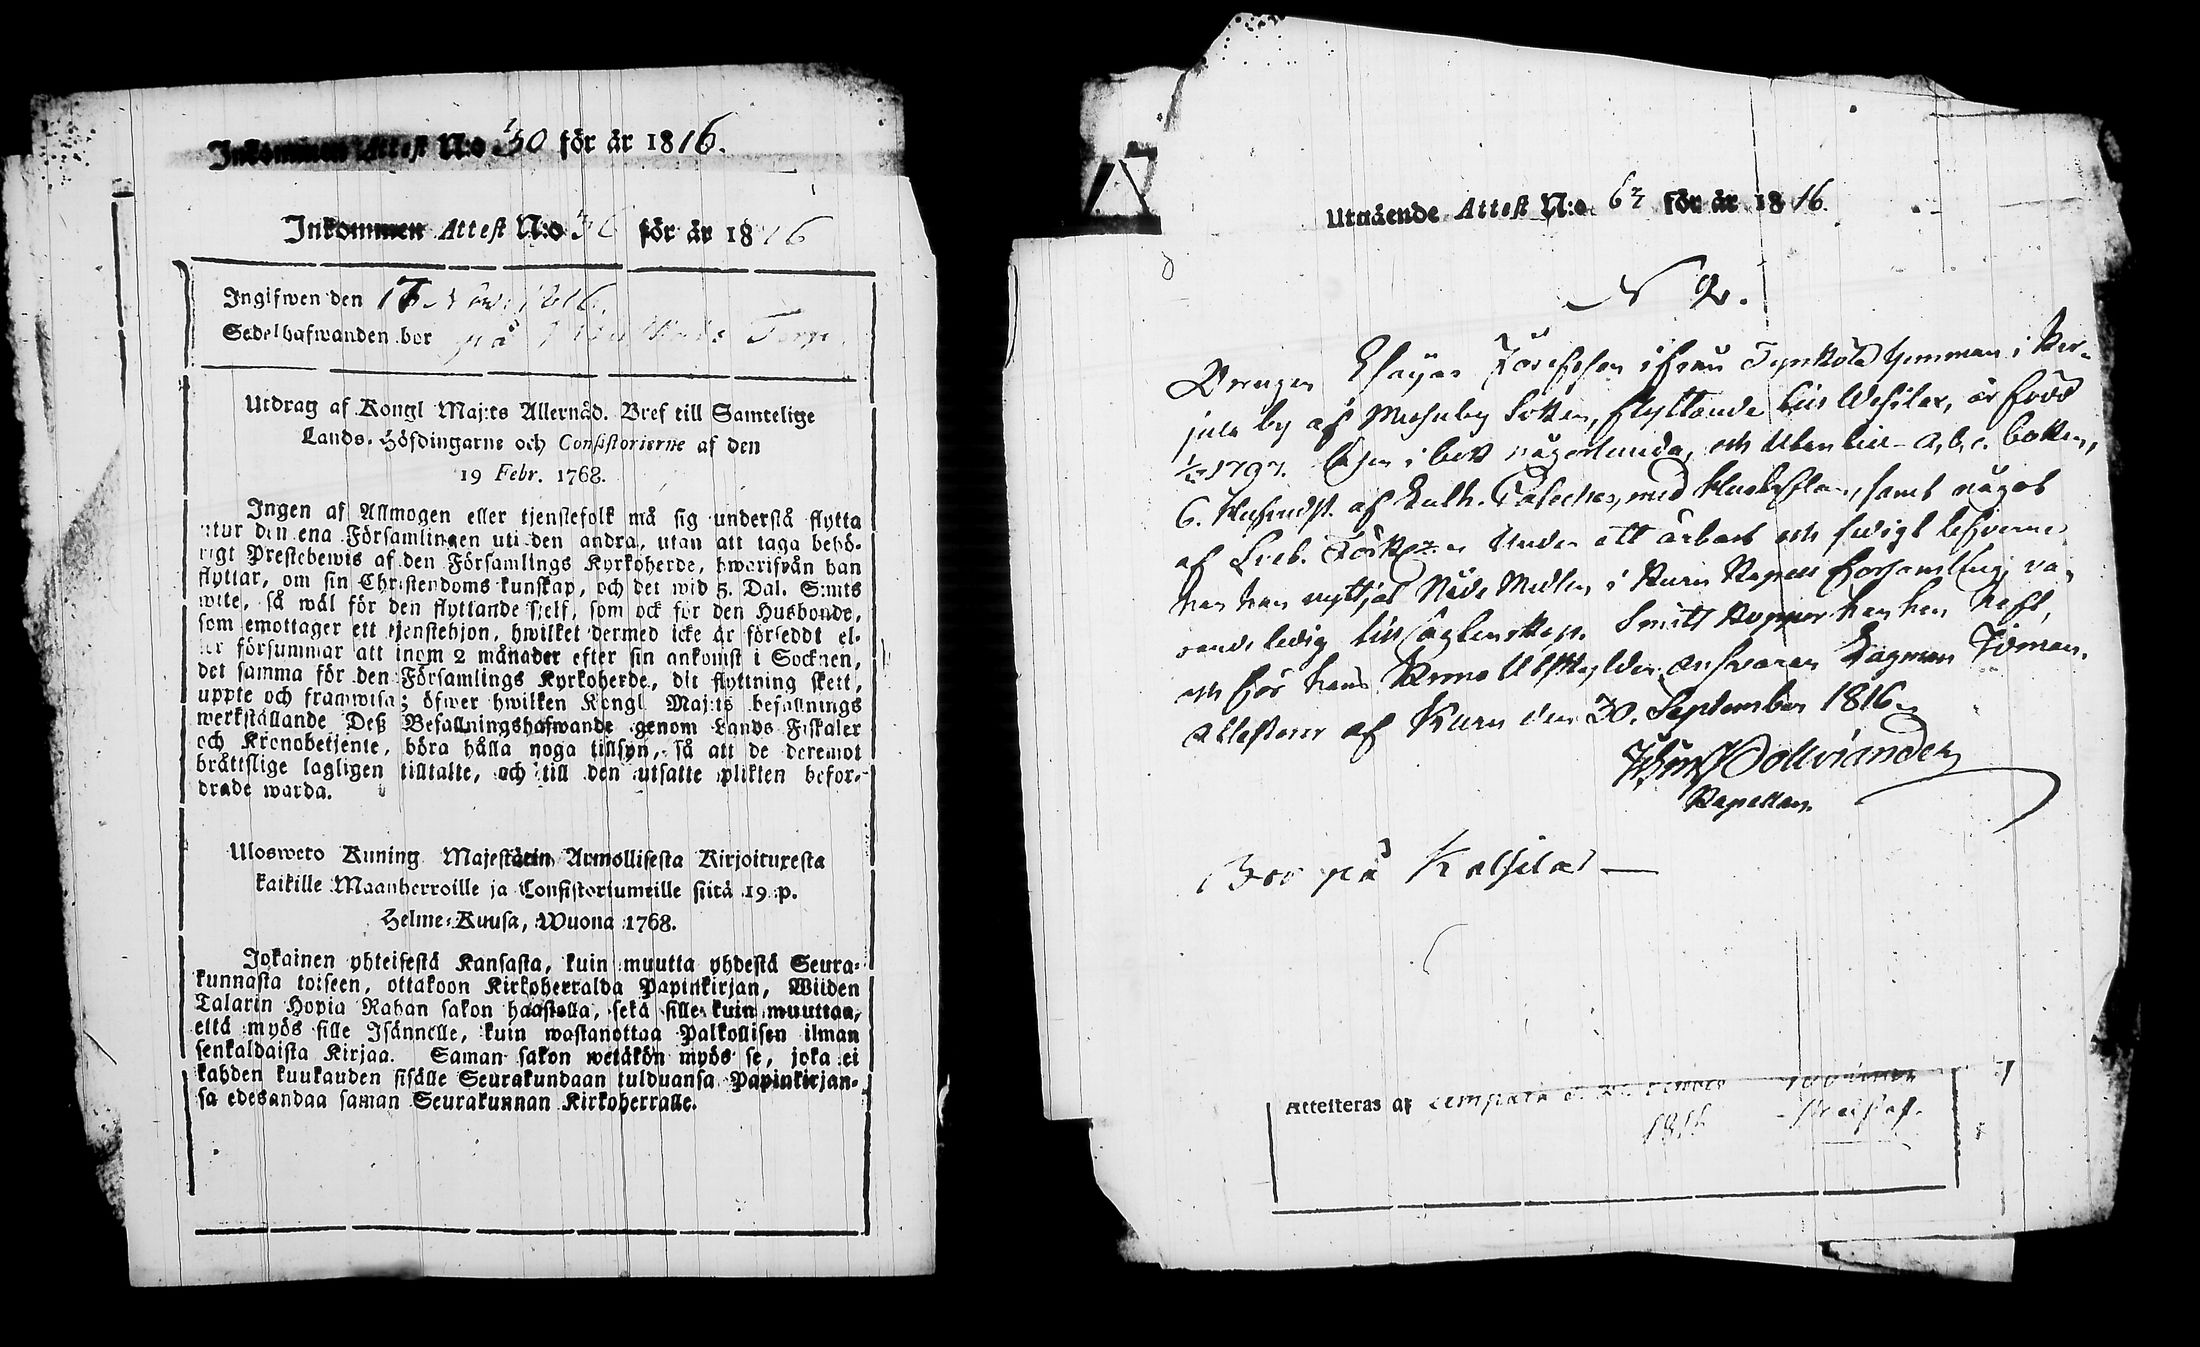 Inkommen Attest N:o 30 för år 1816.
Inkommen Attest N:o 36 för år 1816
Ingifwen den 17 Nov. 1816.
Sedelhafwanden bor på Torp.
Utdrag af Kongl Maj:ts Allernåd. Bref till Samtelige
Lands-Höfdingarne och Consistorierne af den
19 Febr. 1768.
Ingen af Allmogen eller tjenstefolk må sig understå flytta
utur den ena Församlingen uti den andra, utan att taga behö-
rigt Prestebewis af den Församlings Kyrkoherde, hwarifrån han
flyttar, om sin Christendoms kunskap, och det wid 5. Dal. S:mts
wite, så wäl för den flyttande sjelf, som ock för den Husbonde,
som emottager ett tjenstehjon, hwilket dermed icke är förseddt el-
ler försummar att inom 2 månader efter sin ankomst i Socknen,
det samma för den Församlings Kyrkoherde, dit flyttning skett,
uppte och framwisa; öfwer hwilken Kongl Maj:ts befallnings
werkställande Deß Befallningshafwande genom Lands Fiskaler
och Kronobetjente, böra hålla noga tillsyn, så att de deremot
bråttslige lagligen tilltalte, och till den utsatte plikten befor-
drade warda.
Ulosweto Kuning Majestätin Armollisesta Kirjoituxesta
kaikille Maanherroille ja Consistoriumeille siitä 19 p.
Helme-Kuusa, Wuona 1768.
Jokainen yhteisestä Kansasta, kuin muutta yhdestä Seura-
kunnasta toiseen, ottakoon Kirkoherralda Papinkirjan, Wiiden
Talarin Hopia Rahan sakon haastolla, sekä sille kuin muuttaa,
että myös sille Isännelle, kuin wastanottaa Palkollisen ilman
senkaldaista Kirjaa. Saman sakon wetäkön myös se, joka ei
kahden kuukauden sisälle Seurakundaan tulduansa Papinkirjan-
sa edesandaa saman Seurakunnan Kirkoherralle.
Utgående Attest N:o 62 för år 1816.
N 2.
Drengen Esaias Josefsson ifrån hemman i
by af Socken, flyttande till är född
1797. Läser i bok någorlunda, och utan till a, b, c. boken,
6. af Luth. Cateches, med Hustaflan, samt något
af Sveb. Under ett ärbart och sedigt lefverne
har han nyttjat Nåde Medlen i Kuru Kapell Församling, va-
rande ledig till äglenskap. Smitt Koppor har han haft,
och för hans Krono Utskylder ansvarar
Attesterar af Kuru den 30. September 1816.
Kapellan.
Bor på
Attesteras af Lempälä
1816